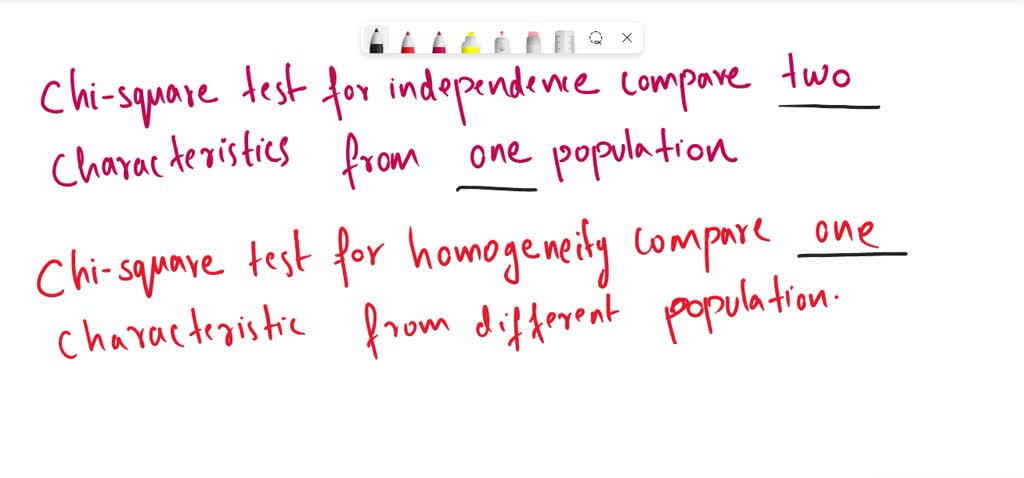 Chi-square test for independence compare two
characteristics from one population
Chi-square test for homogeneity compare one
characteristic from different population.